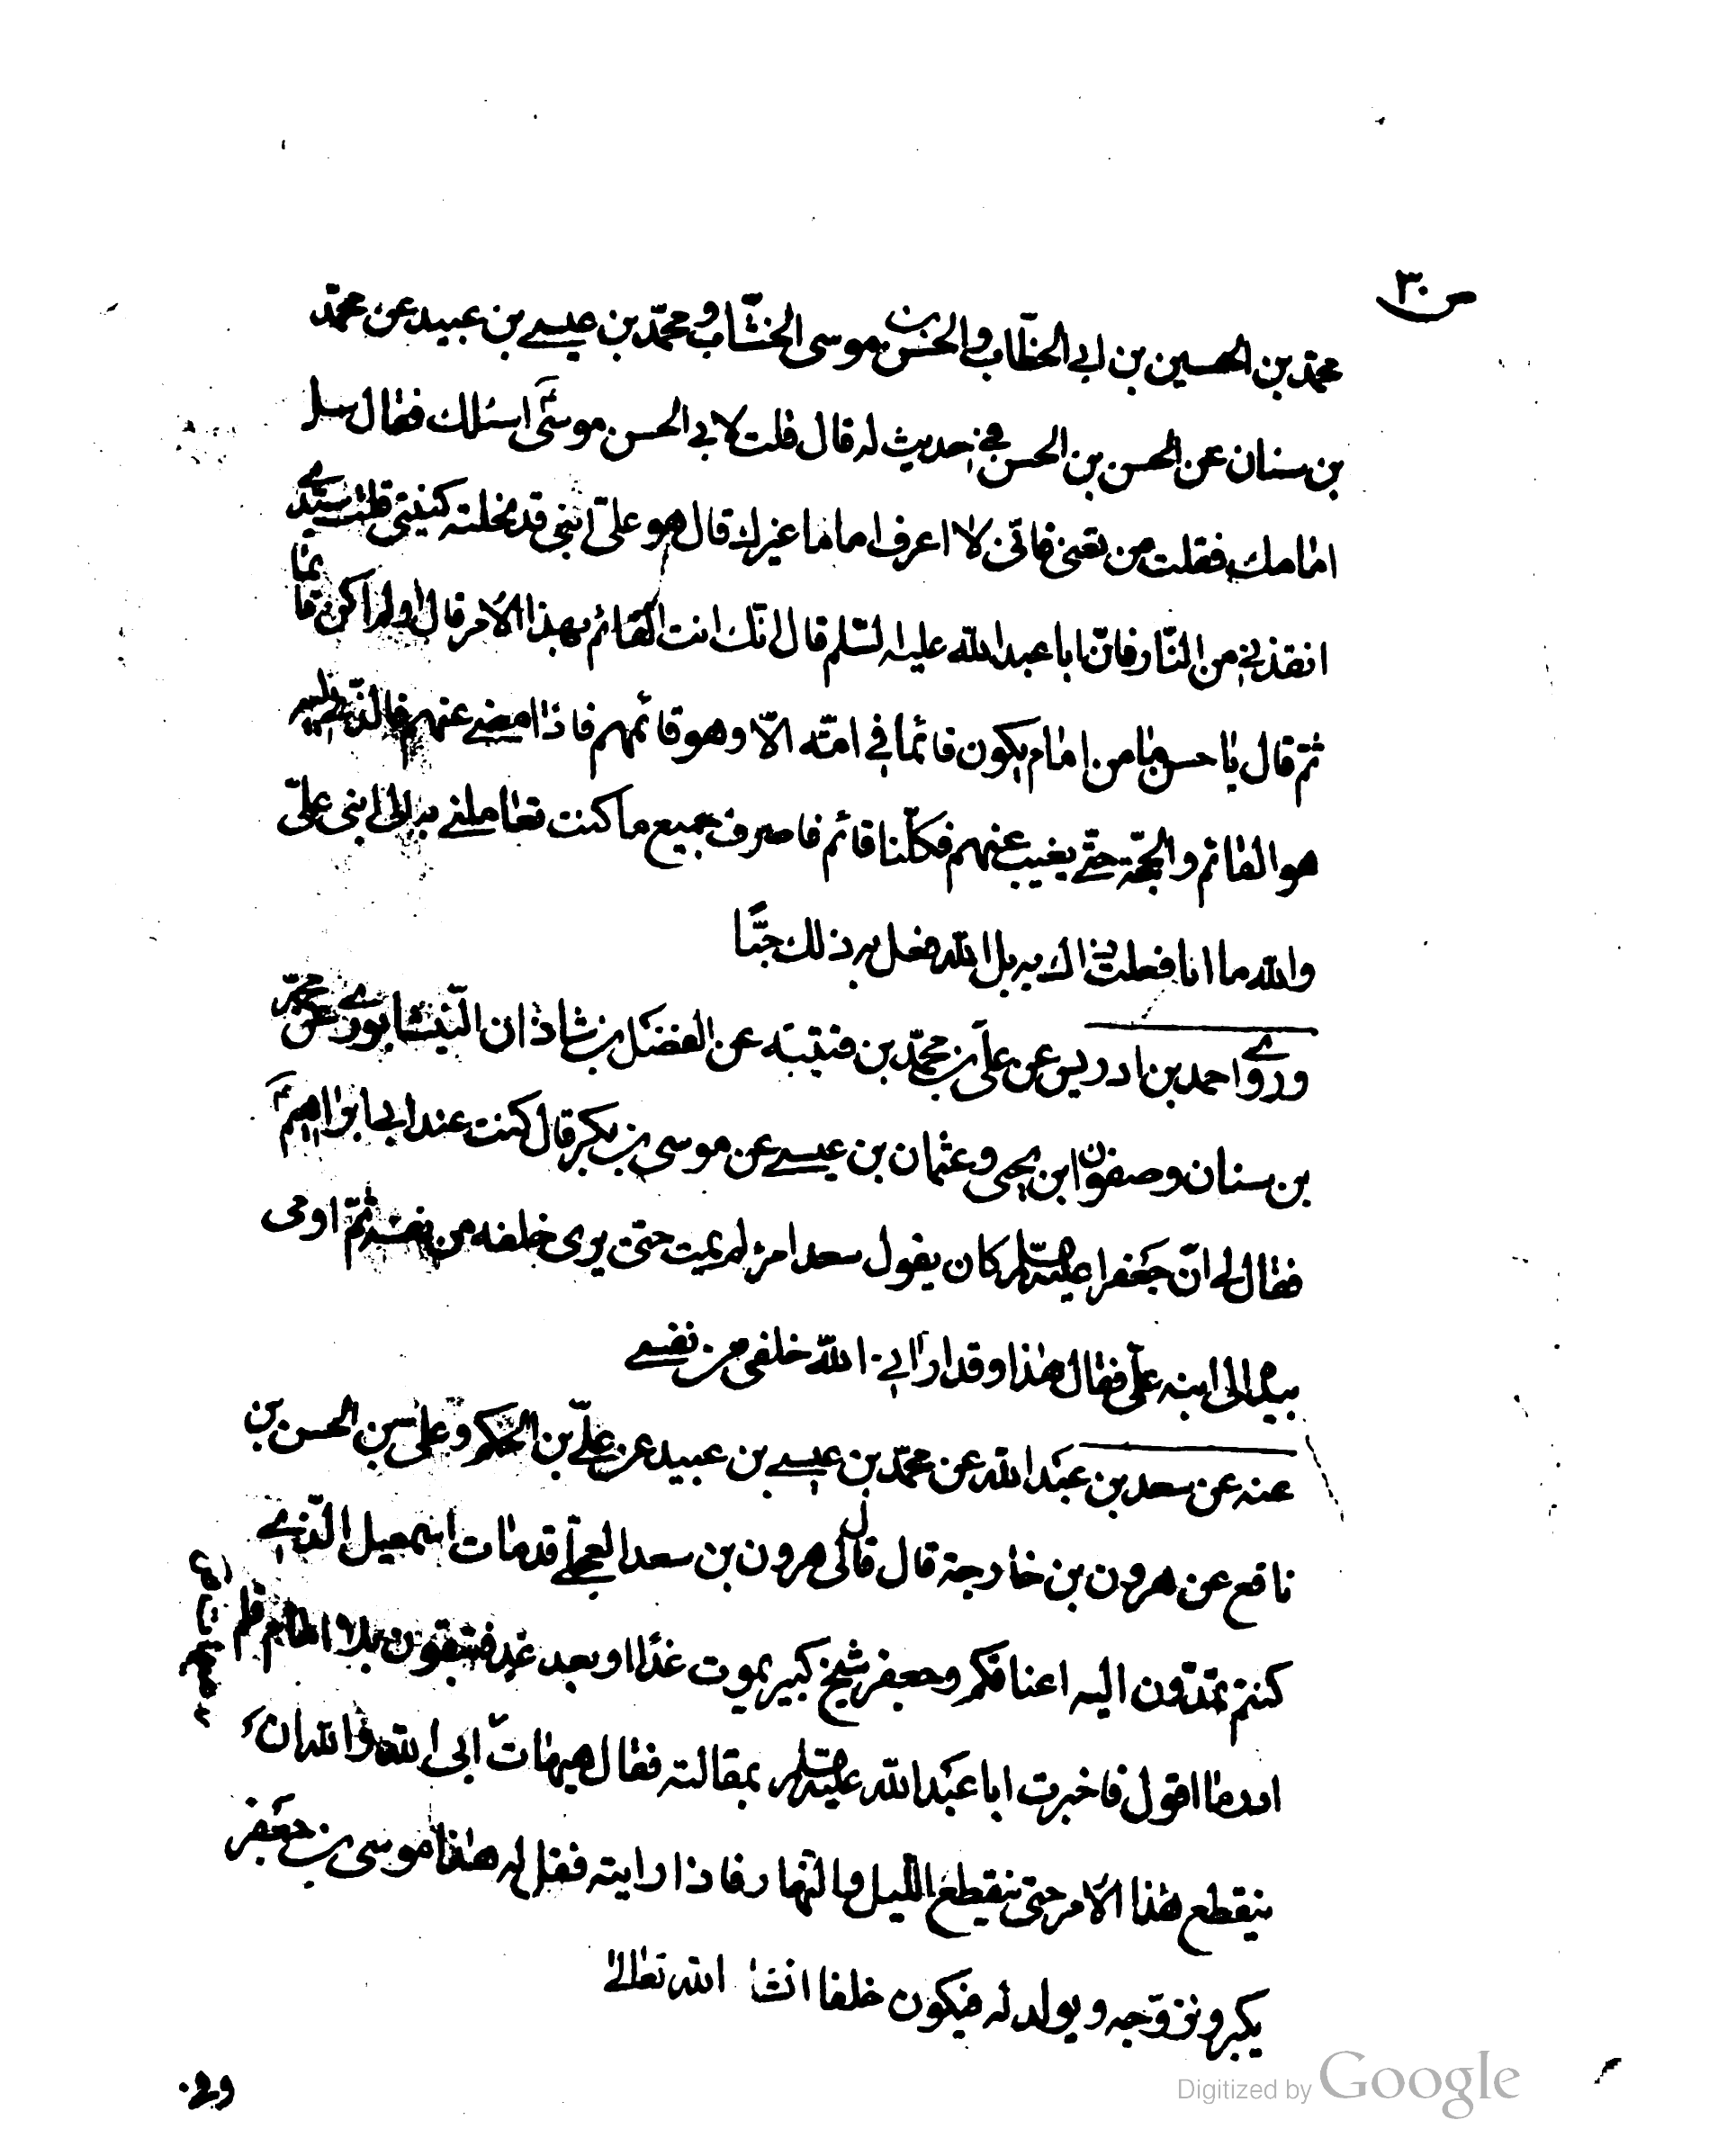 ص ٣٠
محمّد بن الحسين بن ابي الخطّاب والحسن بن موسى الخشّاب ومحمّد بن عيسے بن عبيد عن محمّد
بن سنان عن الحسن بن الحسن في حديث له قال قلت لابي الحسن موسىٰ اسئلك فقال سل
امامك فقلت من تعنى فانّى لا اعرف اماما غيرك قال هو علىّ ابنى قد نحلته كنيتى قلت سيّدے
انقذنى من النّار فانّ ابا عبدالله عليه السّلم قال انّك انت القائم بهذا الامر قال اولم اكن قائما
ثم قال يا حسن ما من امام يكون قائما فى امّته الّا وهو قائمهم فاذا مضے عنهم فالّذے يليه
هو القائم والحجّة حتّے يغيب عنهم فكلّنا قائم فاصرف جميع ما كنت تعاملنے به الى ابنى علىّ
والله ما انا فعلت ذاك به بل الله فعل به ذلك حبّا
وروے احمد بن ادريس عن علىّ بن محمّد بن قتيبة عن الفضل بن شاذان النّيشابورے عن محمّد
بن سنان وصفوان ابن يحيى وعثمان بن عيسے عن موسى بن بكر قال كنت عند ابى ابراهيم ع
فقال لى انّ جعفرا عليه السّلم كان يقول سعد امرؤ لم يمت حتّى يرى خلفه من نفسه ثمّ اومى
بيده الى ابنه علىّ فقال هذا وقد ارانى الله خلفى من نفسے
عنه عن سعد بن عبد الله عن محمّد بن عيسے بن عبيد عن علىّ بن الحكم وعلى بن الحسن بن
نافع عن هرون بن خارجة قال قال لى هرون بن سعد العجلى قد مات اسمعيل الّذے
كنتم تمدّون اليه اعناقكم وجعفر شيخ كبير يموت غدا او بعد غد فتبقون بلا امام فلم
ادر ما اقول فاخبرت ابا عبد الله عليه السّلم بمقالته فقال هيهات ابى الله والله ان
ينقطع هذا الامر حتى ينقطع الليل والنّهار فاذا رايته فقل له هذا موسى بن جعفر
يكبر ونزوّجه ويولد له فيكون خلفا انشا الله تعالى
وفى
Digitized by Google